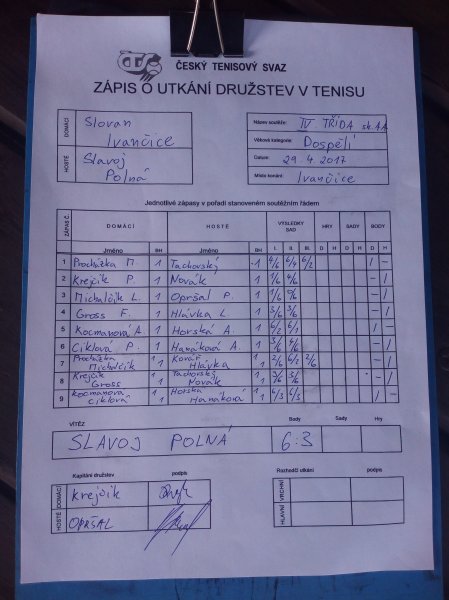 ČTS
ČESKÝ TENISOVÝ SVAZ
ZÁPIS O UTKÁNÍ DRUŽSTEV V TENISU
DOMÁCÍ Slovan Ivančice
HOSTÉ Slavoj Polná
Název soutěže: IV TŘÍDA sk. AA
Věková kategorie: Dospělí
Datum: 29.4.2017
Místo konání: Ivančice
Jednotlivé zápasy v pořadí stanoveném soutěžním řádem
ZÁPAS Č. DOMÁCÍ HOSTÉ VÝSLEDKY SAD HRY SADY BODY
Jméno BH Jméno BH I. II. III. D H D H D H
1 Procházka M. 1 Tachovský 1 4/6 6/4 6/2 1 -
2 Krejčík P. 1 Novák 1 1/6 4/6 - 1
3 Michalčík L. 1 Opršal P. 1 1/6 5/6 - 1
4 Gross F. 1 Hlávka L. 1 3/6 3/6 - 1
5 Kocmanová A. 1 Horská A. 1 6/2 6/1 1 -
6 Ciklová P. 1 Hanáková A. 1 3/6 4/6 - 1
7 Procházka Michalčík 1 1 Kovář Hlávka 1 1 2/6 6/2 2/6 - 1
8 Krejčík Gross 1 1 Tachovský Novák 1 1 3/6 3/6 - 1
9 Kocmanová Ciklová 1 1 Horská Hanáková 1 1 6/3 6/3 1 -
VÍTĚZ Body Sady Hry
SLAVOJ POLNÁ 6:3
Kapitáni družstev podpis Rozhodčí utkání podpis
DOMÁCÍ Krejčík VRCHNÍ
HOSTÉ OPRŠAL HLAVNÍ